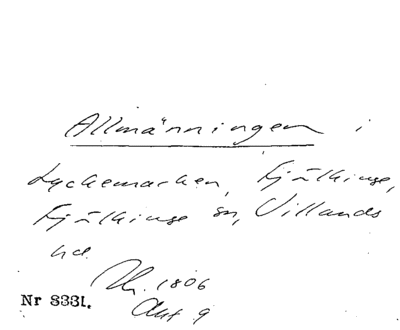 Allmänningen i
Lyckemarken, Fjälkinge,
Fjälkinge sn, Villands
hd.
Th. 1806
Nr 8331.
Akt 9